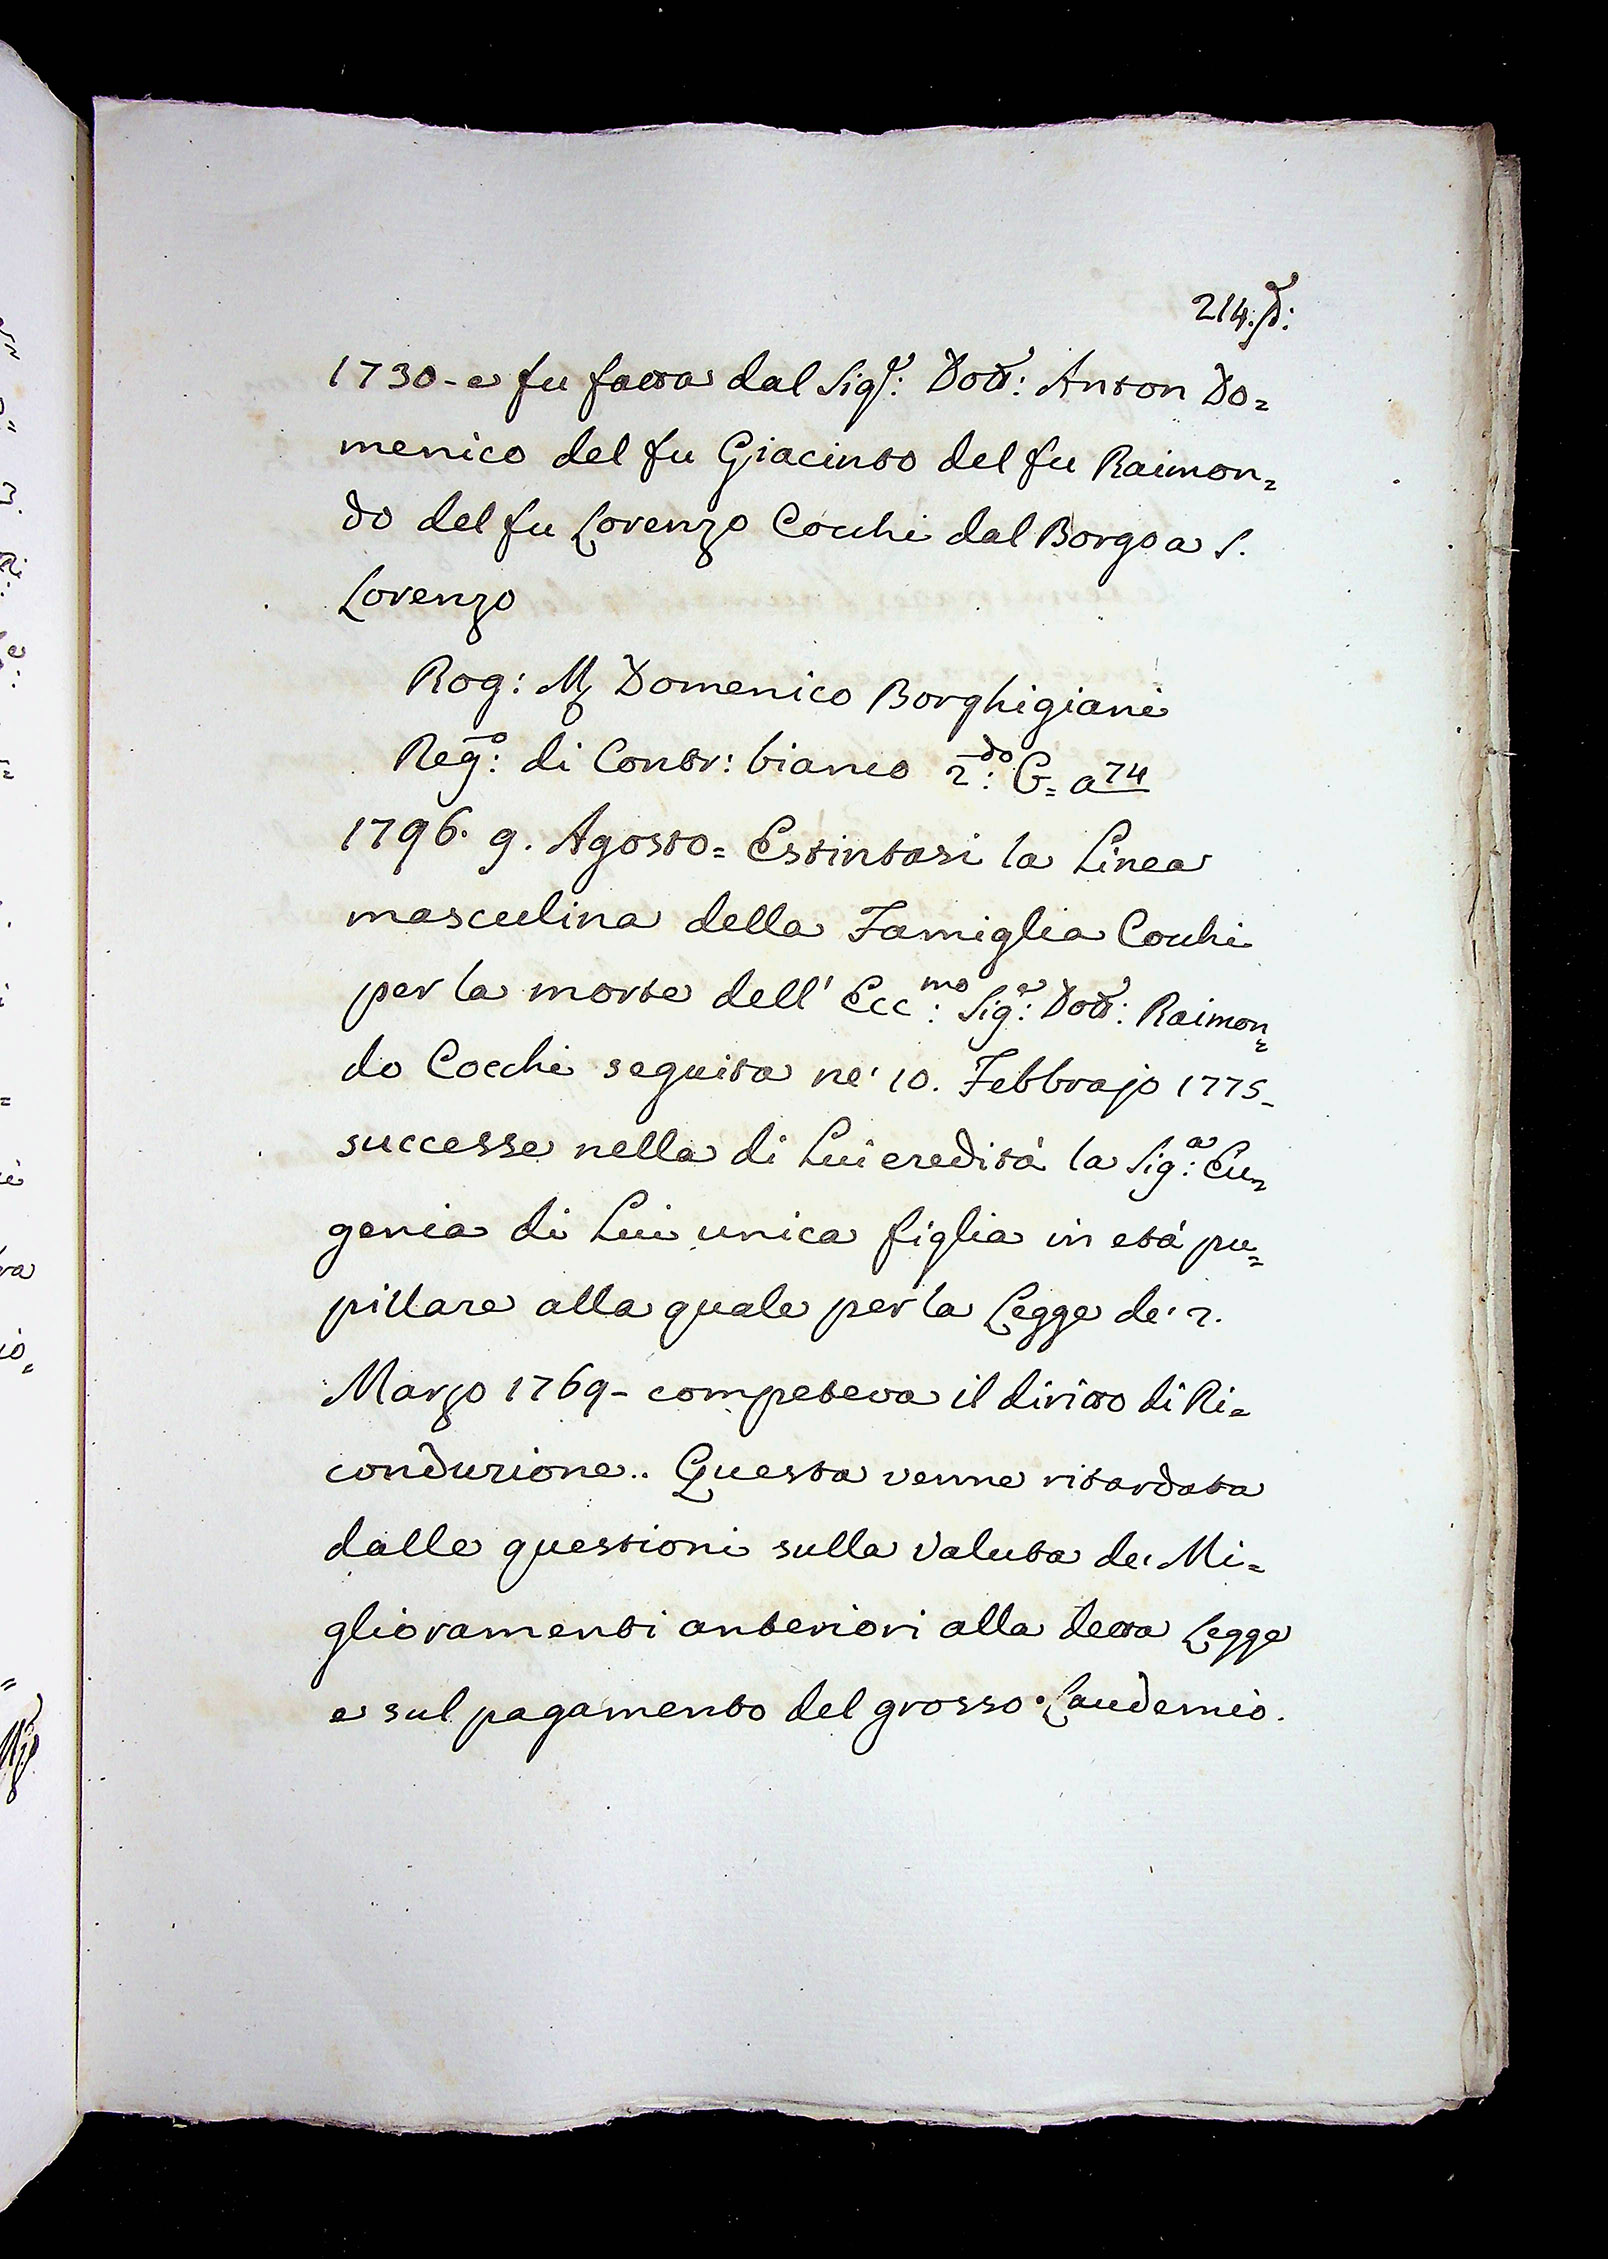 214.
1730- e fu fatta dal Sig.r: Dott.r: Anton Do=
menico del fu Giacinto del fu Raimon=
do del fu Lorenzo Cocchi dal Borgo a S.
Lorenzo
Rog: M Domenico Borghigiani
Reg.o: di Contr: bianco 2.do: G= a 74
1796. 9. Agosto= Estintasi la Linea
masculina della Famiglia Cocchi
per la morte dell' Ecc.mo: Sig.e: Dott.r: Raimon=
do Cocchi seguita ne' 10. Febbrajo 1775-
successe nella di Lui eredità la Sig.a: Eu=
genia di Lui unica figlia in età pu=
pillare alla quale per la Legge de' 2.
Marzo 1769- competeva il diritto di Ri=
conduzione.. Questa venne ritardata
dalle questioni sulla valuta de' Mi=
glioramenti anteriori alla detta Legge
e sul pagamento del grosso Laudemio.